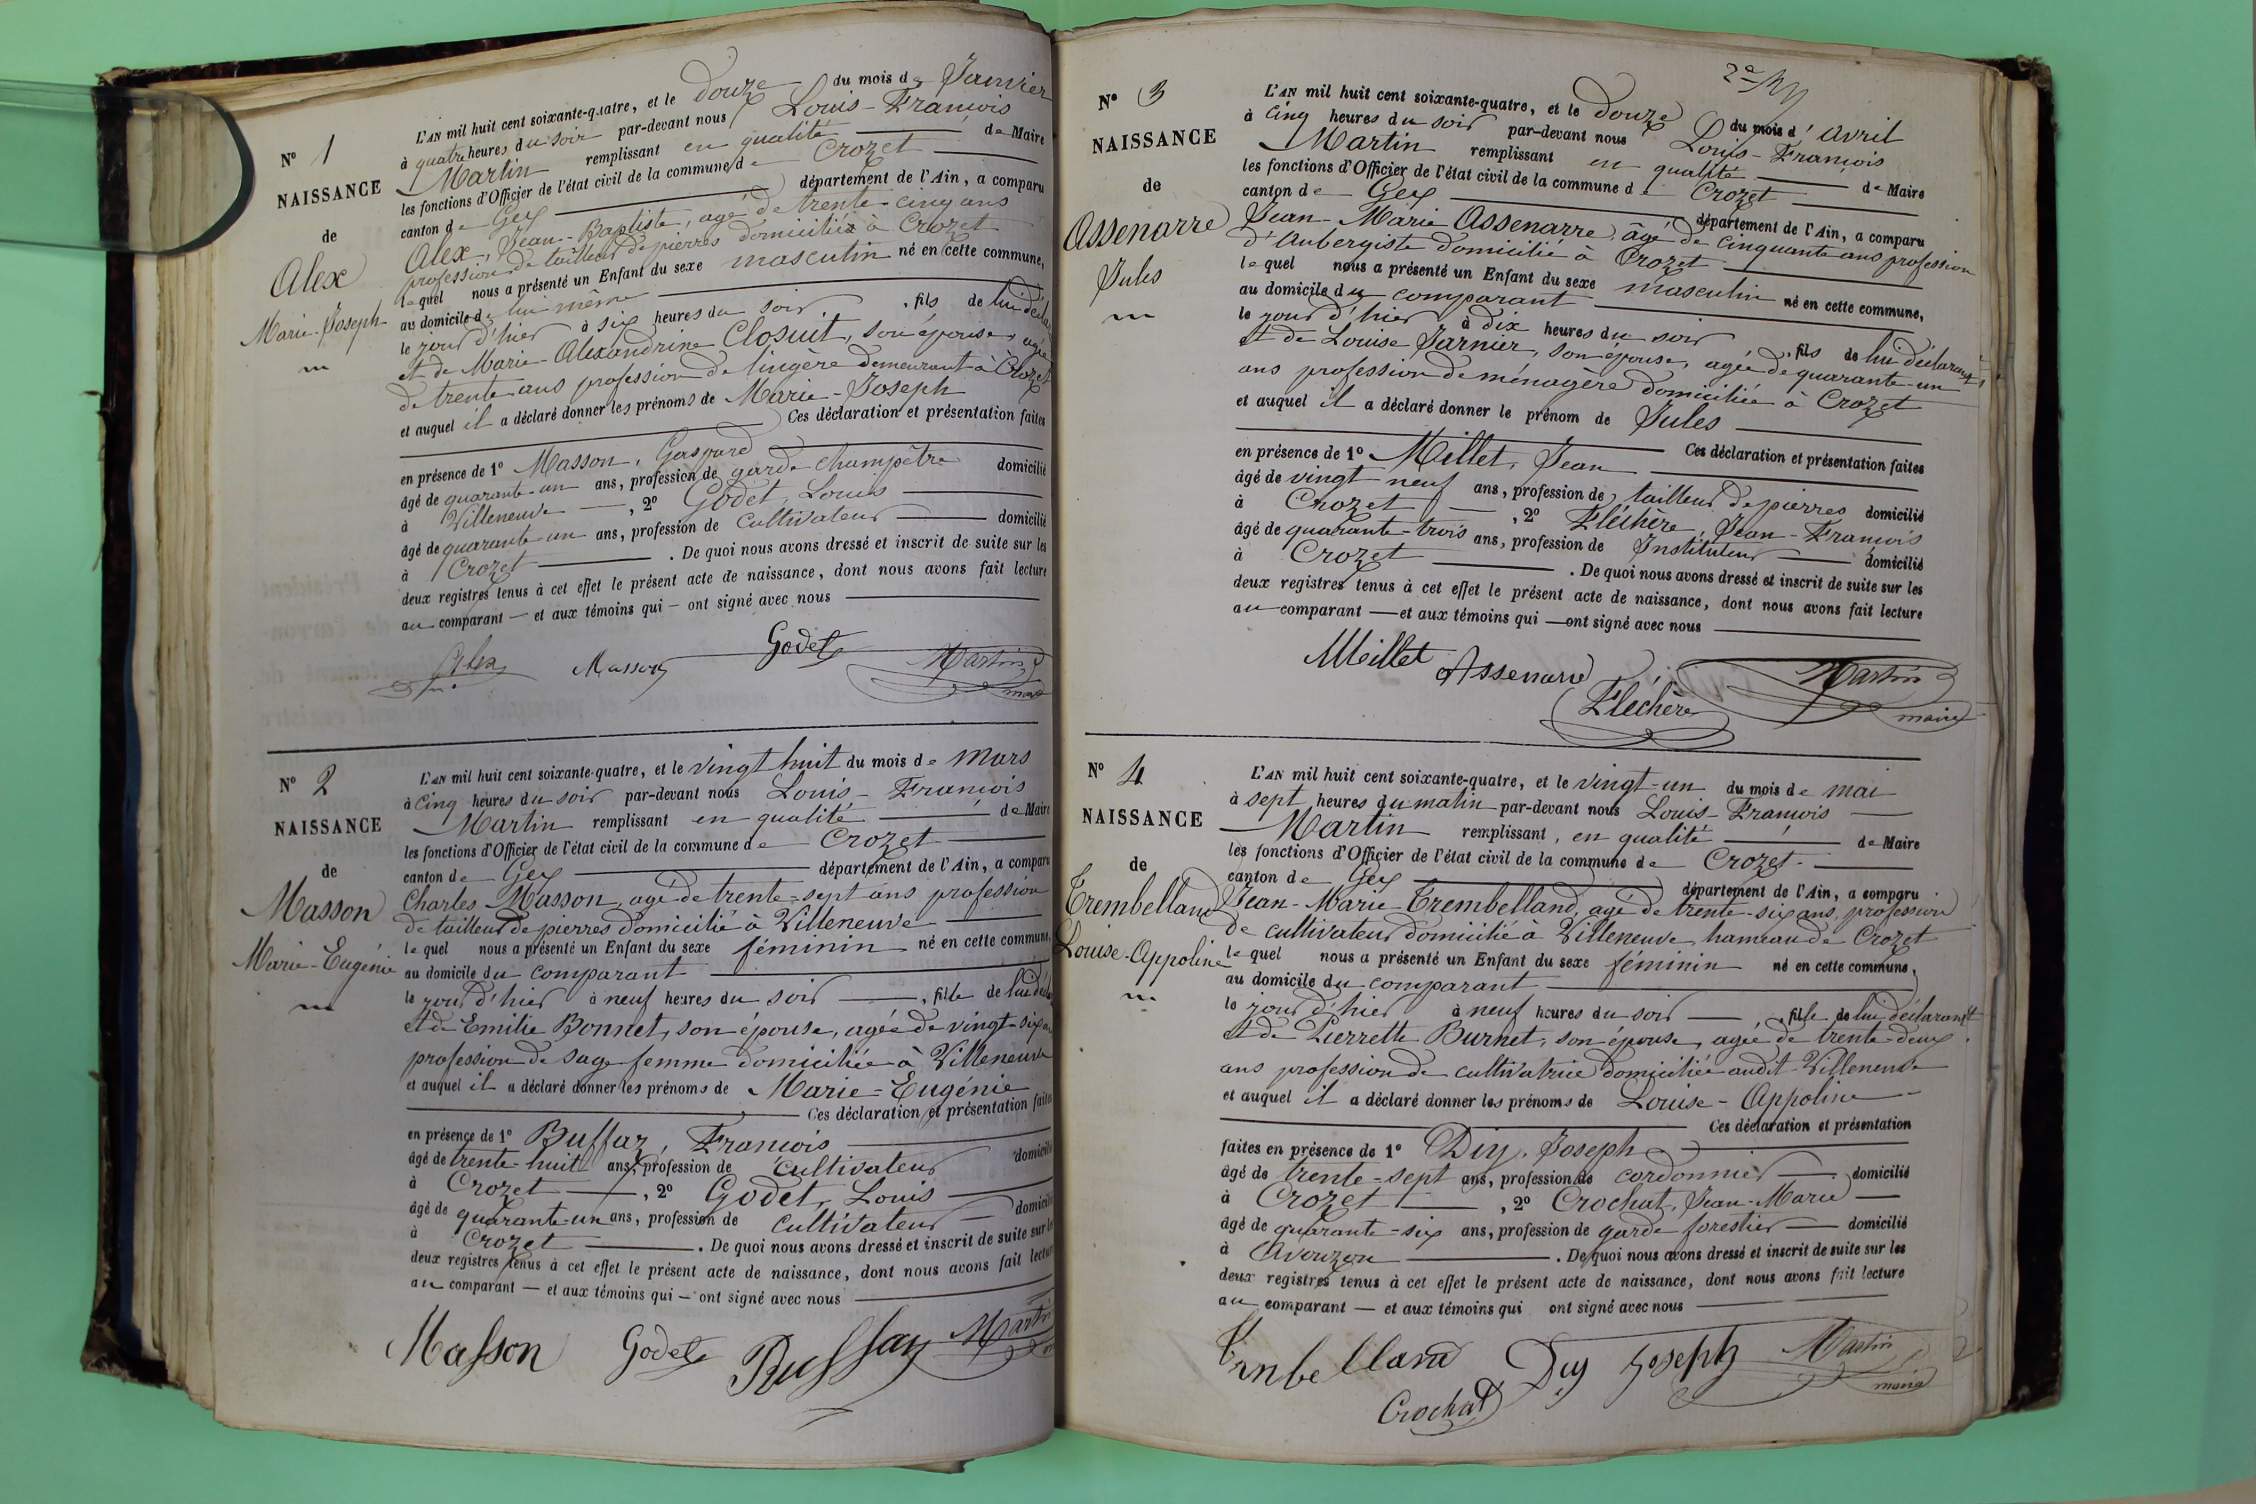 N° 1
NAISSANCE
de
Alex
Marie-Joseph
L'AN mil huit cent soixante-quatre, et le douze du mois de Janvier
à quatre heures du soir par-devant nous Louis-François
Martin remplissant en qualité de Maire
les fonctions d'Officier de l'état civil de la commune de Crozet
canton de Gex département de l'Ain, a comparu
Alex, Jean-Baptiste, agé de trente-cinq ans
profession de tailleur de pierres domicilié à Crozet
lequel nous a présenté un Enfant du sexe masculin né en cette commune,
au domicile de lui même
le jour d'hier à six heures du soir, fils de lui décla
et de Marie-Alexandrine Closuit, son épouse, agée
de trente ans profession de lingère demeurant à Crozet
et auquel il a déclaré donner les prénoms de Marie-Joseph
Ces déclaration et présentation faites
en présence de 1° Masson, Gaspard
âgé de quarante-un ans, profession de garde champêtre domicilié
à Villeneuve, 2° Godet, Louis
âgé de quarante un ans, profession de cultivateur domicilié
à Crozet. De quoi nous avons dressé et inscrit de suite sur les
deux registres tenus à cet effet le présent acte de naissance, dont nous avons fait lecture
au comparant — et aux témoins qui — ont signé avec nous
Alex Masson Godet Martin
maire
N° 2
NAISSANCE
de
Masson
Marie-Eugénie
L'AN mil huit cent soixante-quatre, et le vingt huit du mois de Mars
à cinq heures du soir par-devant nous Louis-François
Martin remplissant en qualité de Maire
les fonctions d'Officier de l'état civil de la commune de Crozet
canton de Gex département de l'Ain, a comparu
Charles Masson, agé de trente-sept ans profession
de tailleur de pierres domicilié à Villeneuve
lequel nous a présenté un Enfant du sexe féminin né en cette commune,
au domicile du comparant
le jour d'hier à neuf heures du soir, fille de lui décla
et de Emilie Bonnet, son épouse, agée de vingt-six ans
profession de sage femme domiciliée à Villeneuve
et auquel il a déclaré donner les prénoms de Marie-Eugénie
Ces déclaration et présentation faites
en présence de 1° Buffaz, François
âgé de trente-huit ans, profession de cultivateur domicilié
à Crozet, 2° Godet, Louis
âgé de quarante-un ans, profession de cultivateur domicilié
à Crozet. De quoi nous avons dressé et inscrit de suite sur les
deux registres tenus à cet effet le présent acte de naissance, dont nous avons fait lecture
au comparant — et aux témoins qui — ont signé avec nous
Masson Godet Buffaz Martin
N° 3
NAISSANCE
de
Assenarre
Jules
L'AN mil huit cent soixante-quatre, et le douze du mois d'avril
à cinq heures du soir par-devant nous Louis-François
Martin remplissant en qualité de Maire
les fonctions d'Officier de l'état civil de la commune d Crozet
canton de Gex département de l'Ain, a comparu
Jean-Marie Assenarre, âgé de cinquante ans profession
d'Aubergiste domicilié à Crozet
lequel nous a présenté un Enfant du sexe masculin né en cette commune,
au domicile du comparant
le jour d'hier à dix heures du soir, fils de lui déclarant,
et de Louise Jarnier, son épouse, agée de quarante-un
ans profession de ménagère domiciliée à Crozet
et auquel il a déclaré donner le prénom de Jules
Ces déclaration et présentation faites
en présence de 1° Millet, Jean
âgé de vingt neuf ans, profession de tailleur de pierres domicilié
à Crozet, 2° Fléchère, Jean-François
âgé de quarante-trois ans, profession de Instituteur domicilié
à Crozet. De quoi nous avons dressé et inscrit de suite sur les
deux registres tenus à cet effet le présent acte de naissance, dont nous avons fait lecture
au comparant — et aux témoins qui — ont signé avec nous
Millet Assenarre Martin
Fléchère maire
N° 4
NAISSANCE
de
Trembelland
Louise-Appoline
L'AN mil huit cent soixante-quatre, et le vingt-un du mois de mai
à sept heures du matin par-devant nous Louis-François
Martin remplissant, en qualité de Maire
les fonctions d'Officier de l'état civil de la commune de Crozet
canton de Gex département de l'Ain, a comparu
Jean-Marie Trembelland, agé de trente-six ans, profession
de cultivateur domicilié à Villeneuve hameau de Crozet
lequel nous a présenté un Enfant du sexe féminin né en cette commune,
au domicile du comparant
le jour d'hier à neuf heures du soir, fille de lui déclarant
et de Pierrette Burnet, son épouse, agée de trente-deux
ans profession de cultivatrice domiciliée audit Villeneuve
et auquel il a déclaré donner les prénoms de Louise-Appoline
Ces déclaration et présentation
faites en présence de 1° Diy, Joseph
âgé de trente-sept ans, profession de cordonnier domicilié
à Crozet, 2° Crochat, Jean-Marie
âgé de quarante-six ans, profession de garde forestier domicilié
à Avouzon. De quoi nous avons dressé et inscrit de suite sur les
deux registres tenus à cet effet le présent acte de naissance, dont nous avons fait lecture
au comparant — et aux témoins qui ont signé avec nous
Trnbelland Diy Joseph Martin
Crochat maire